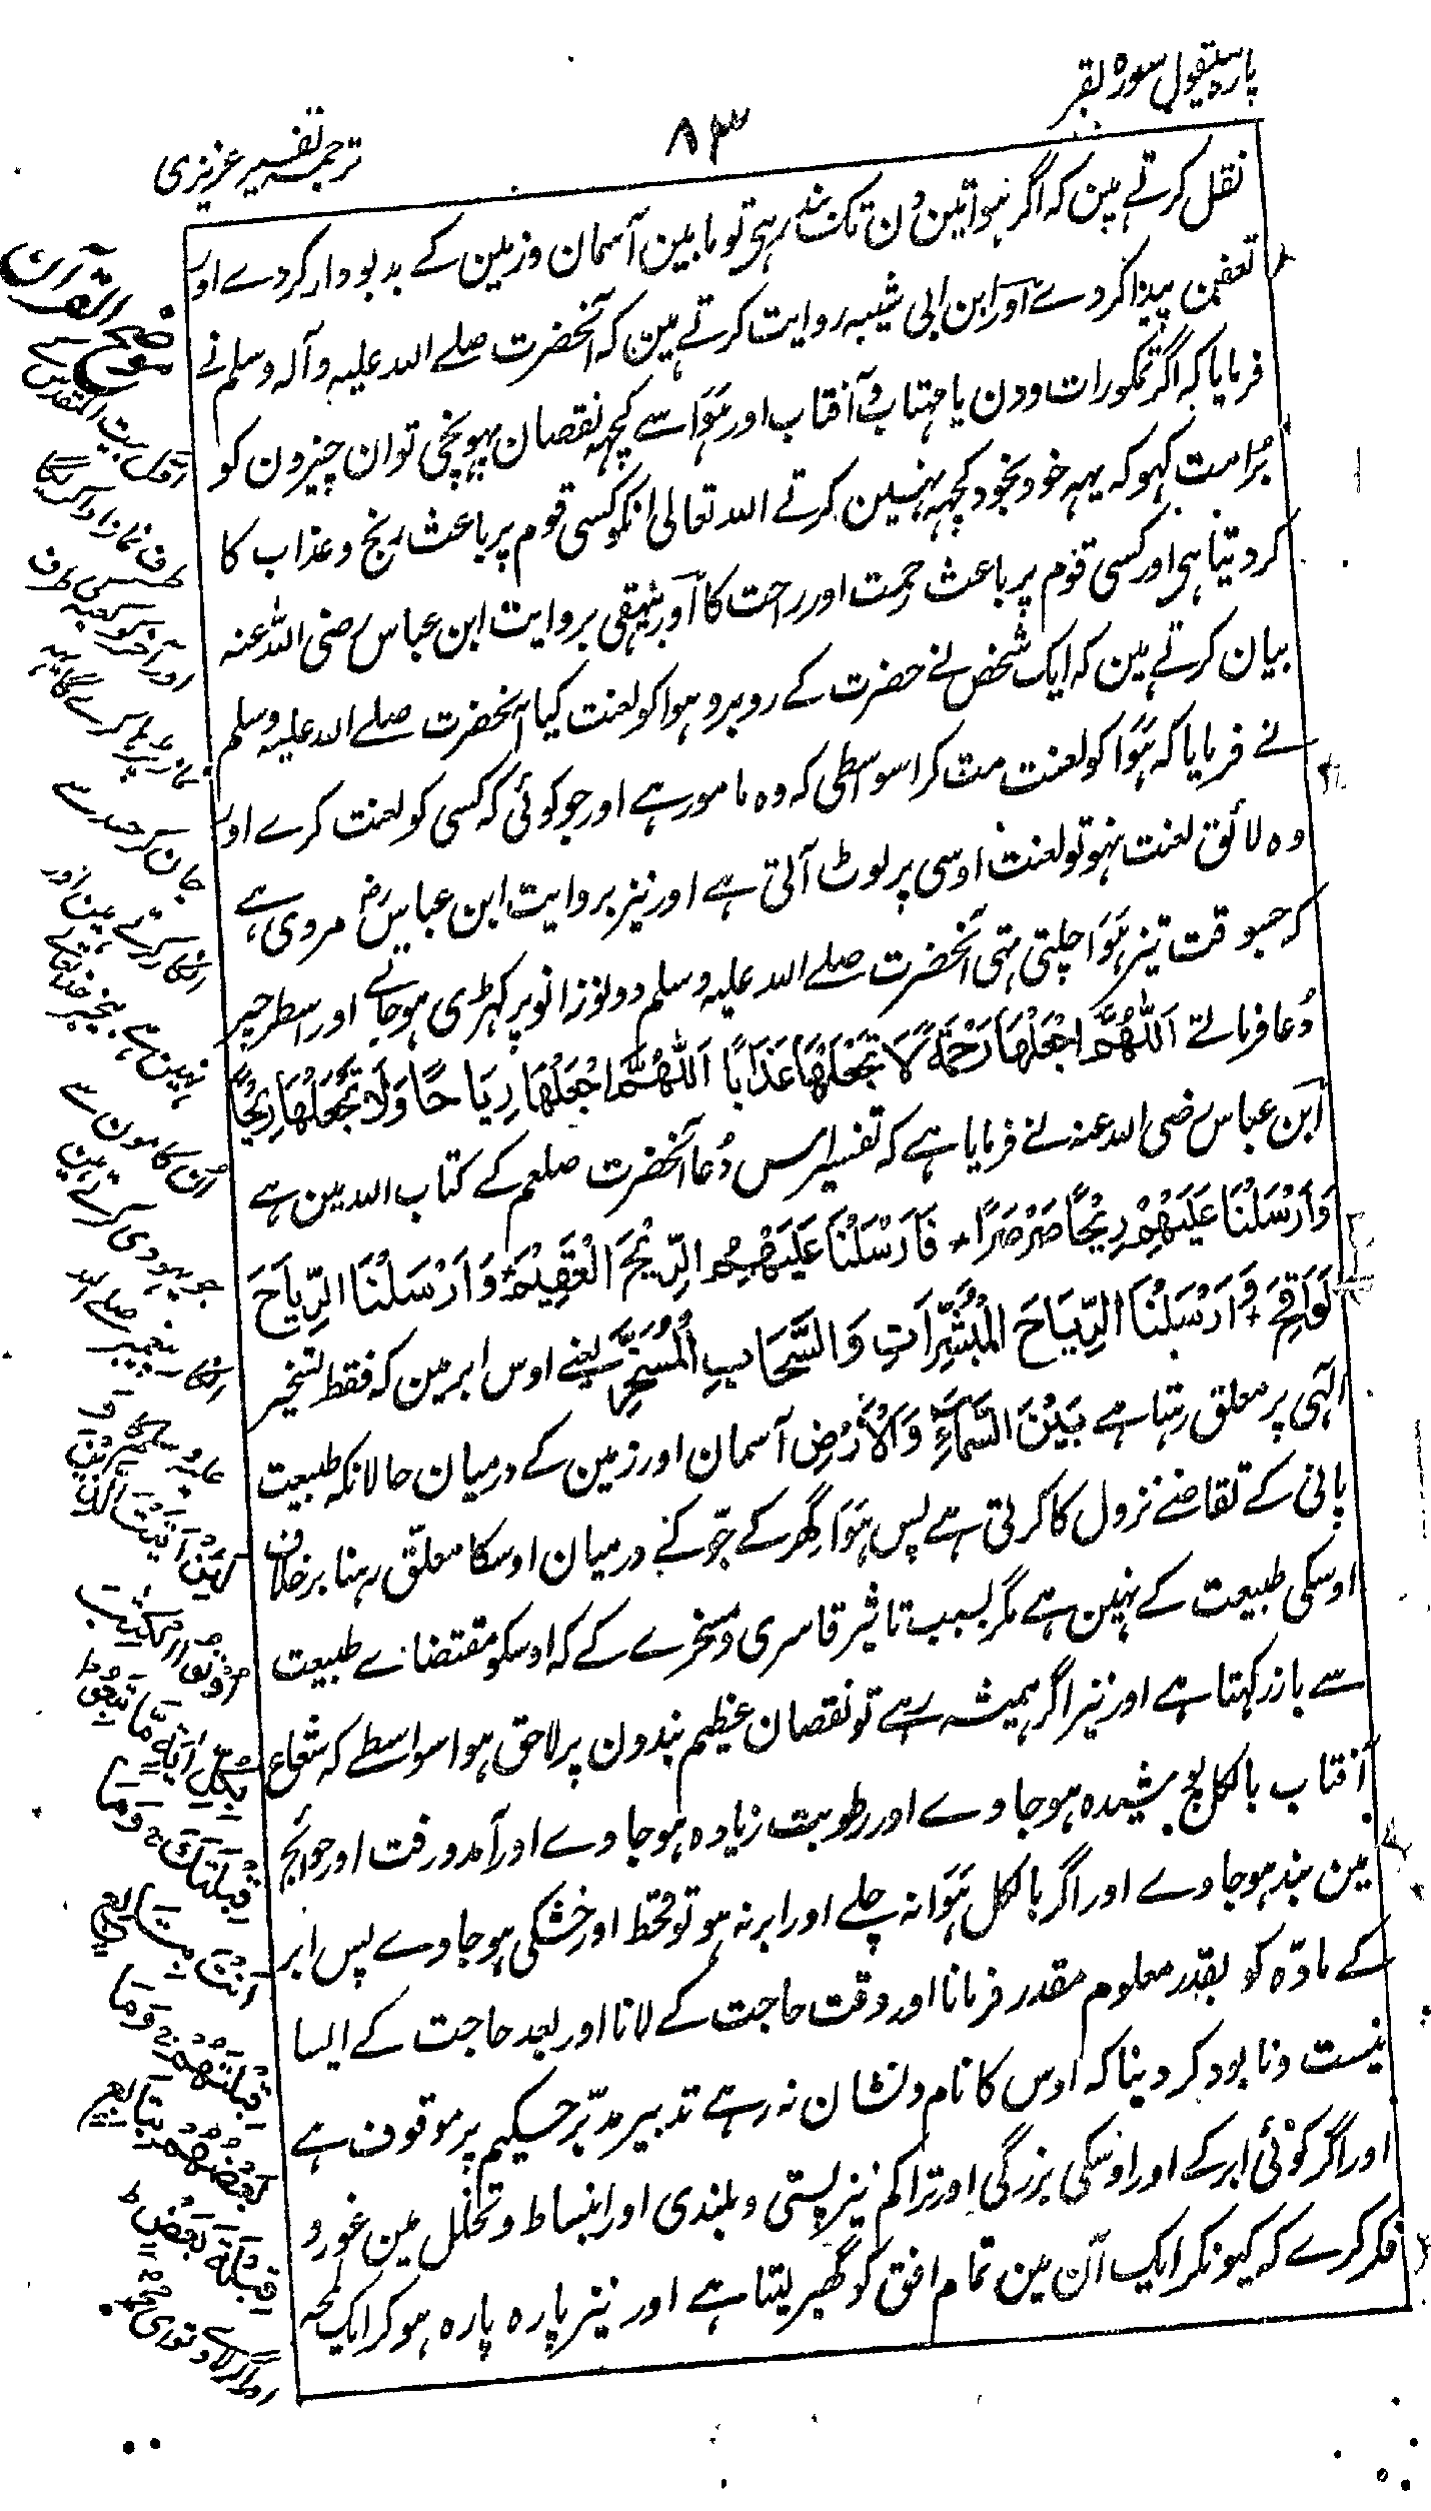 پارہ سیقول سورہ بقر
۸۳
ترجمہ تفسیر عزیزی
نقل کرتے ہین کہ اگر ہوا تین دن تک بند رہی تو مابین آسمان وزمین کے بدبودار کردے اور
تعفن پیدا کردے اور ابن ابی شیبہ روایت کرتے ہین کہ آنحضرت صلے اللہ علیہ وآلہ وسلم نے
فرمایا کہ اگر تمکو رات ودن یا مہتاب وآفتاب اور ہَوَا سے کچہہ نقصان پہونچی تو ان چیزون کو
بُرا مت کہو کہ یہہ خود بخود کچہہ نہین کرتے اللہ تعالی انکو کسی قوم پر باعث رنج وعذاب کا
کردیتا ہی اور کسی قوم پر باعث رحمت اور راحت کا اور بیہقی بروایت ابن عباس رضی اللہ عنہ
بیان کرتے ہین کہ ایک شخص نے حضرت کے روبرو ہوا کو لعنت کیا آنحضرت صلے اللہ علیہ وسلم
نے فرمایا کہ ہَوَا کو لعنت مت کر اسواسطی کہ وہ مامور ہے اور جو کوئی کہ کسی کو لعنت کرے اور
وہ لائق لعنت نہو تو لعنت اوسی پر لوٹ آتی ہے اور نیز بروایت ابن عباس رض مروی ہے
کہ جسوقت تیز ہَوَا چلتی تہی آنحضرت صلے اللہ علیہ وسلم دونو زانو پر کہڑی ہوجاتے اور اسطرحپر
دُعا فرماتے اَللّٰهُمَّ اجْعَلْهَا رَحْمَةً لَا تَجْعَلْهَا عَذَابًا اَللّٰهُمَّ اجْعَلْهَا رِيَاحًا وَلَا تَجْعَلْهَا رِيْحًا
ابن عباس رضی اللہ عنہ نے فرمایا ہے کہ تفسیر اس دُعا آنحضرت صلعم کے کتاب اللہ مین ہے
وَاَرْسَلْنَا عَلَيْهِمْ رِيْحًا صَرْصَرًا * فَاَرْسَلْنَا عَلَيْهِمُ الرِّيْحَ الْعَقِيْمَ * وَاَرْسَلْنَا الرِّيَاحَ
لَوَاقِحَ * وَاَرْسَلْنَا الرِّيَاحَ الْمُبَشِّرَاتِ وَالسَّحَابِ الْمُسَخَّرِ یعنے اوس ابر مین کہ فقط تسخیر
الٰہی پر معلق رہتا ہے بَيْنَ السَّمَآءِ وَالْاَرْضِ آسمان اور زمین کے درمیان حالانکہ طبیعت
پانی کے تقاضے نزول کا کرتی ہے پس ہَوَا گہر کے جَوّ کے درمیان اوسکا معلّق رہنا برخلاف
اوسکی طبیعت کے نہین ہے مگر بسبب تاثیر قاسری ومسخرے کے کہ اوسکو مقتضاے طبیعت
سے باز رکہتا ہے اور نیز اگر ہمیشہ رہے تو نقصان عظیم بندون پر لاحق ہو اسواسطے کہ شعاع
آفتاب بالکل پوشیدہ ہوجاوے اور رطوبت زیادہ ہوجاوے اور آمدورفت اور حوائج
مین بند ہوجاوے اور اگر بالکل ہَوَا نہ چلے اور ابر نہ ہو تو قحط اور خشکی ہوجاوے پس ابر
کے مادّہ کو بقدر معلوم مقدر فرمانا اور وقت حاجت کے لانا اور بعد حاجت کے ایسا
نیست ونابود کردینا کہ اوس کا نام ونشان نہ رہے تدبیر مدبّر حکیم پر موقوف ہے
اور اگر کوئی ابر کے اور اوسکی بزرگی اور تراکم نیز پستی وبلندی اور انبساط وتخلل مین غور و
فکر کرے کہ کیونکر ایک آن مین تمام افق کو گہیر لیتا ہے اور نیز پارہ پارہ ہوکر ایک لمحہ
موضح القرآن
نہین ہے بغیر
اُن کامون سے
جو یہودی کرتے ہین
وَ
لَئِنْ اَتَيْتَ الَّذِيْنَ
اُوْتُوا الْكِتٰبَ
بِكُلِّ اٰيَةٍ مَّا تَبِعُوْا
قِبْلَتَكَ وَمَا
اَنْتَ بِتَابِعٍ
قِبْلَتَهُمْ وَمَا
بَعْضُهُمْ بِتَابِعٍ
قِبْلَةَ بَعْضٍ